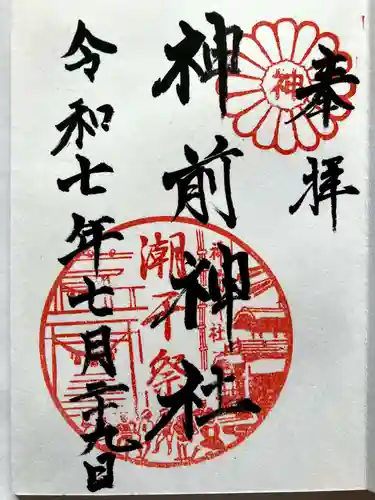 奉拝
神
神前神社
潮干祭
神社
令和七年七月二十九日